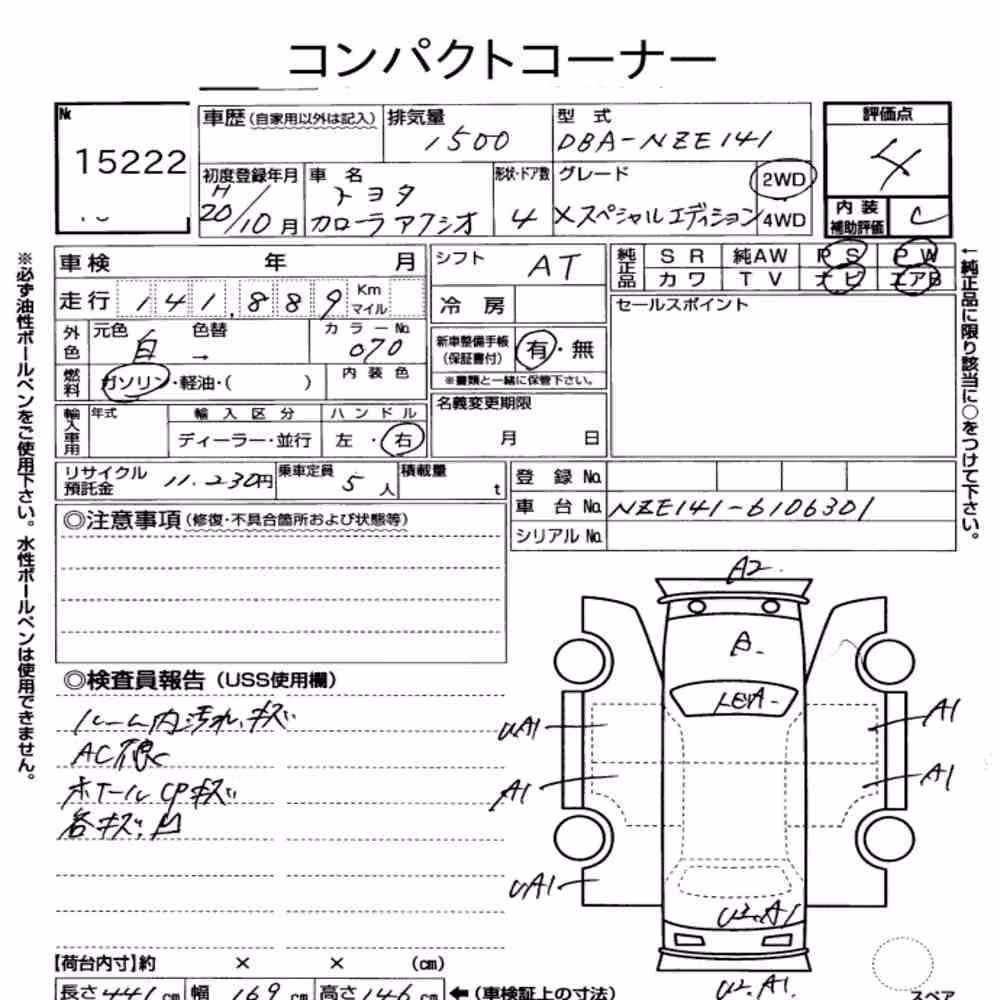 コンパクトコーナー
№ 15222
車歴 (自家用以外は記入)
排気量 1500
型式 DBA-NZE141
評価点 4
初度登録年月 H20/10月
車名 トヨタ カローラアクシオ
形状・ドア数 4
グレード Xスペシャルエディション
2WD 4WD
内装補助評価 C
車検 年 月
シフト AT
純正品 SR 純AW PS PW
カワ TV ナビ エアB
走行 141,889 Km マイル
冷房
セールスポイント
外色 元色 白 色替 → カラーNo. 070
新車整備手帳 (保証書付) 有・無
※書類と一緒に保管下さい。
燃料 ガソリン・軽油・( ) 内装色
名義変更期限 月 日
輸入車用 年式 輸入区分 ハンドル
ディーラー・並行 左・右
リサイクル預託金 11.230円 乗車定員 5人 積載量 t
登録No.
車台No. NZE141-6106301
シリアルNo.
◎注意事項 (修復・不具合箇所および状態等)
◎検査員報告 (USS使用欄)
ルーム内汚れ、キズ
AC不良
ホイールCPキズ
各キズ、凹
A2
B-
A1
A1
UA1
A1
UA1
U2.A1
U2.A1
【荷台内寸】約 × × (cm)
長さ441cm 幅169cm 高さ146cm ←(車検証上の寸法)
スペア
※必ず油性ボールペンをご使用下さい。水性ボールペンは使用できません。
←純正品に限り該当に○をつけて下さい。